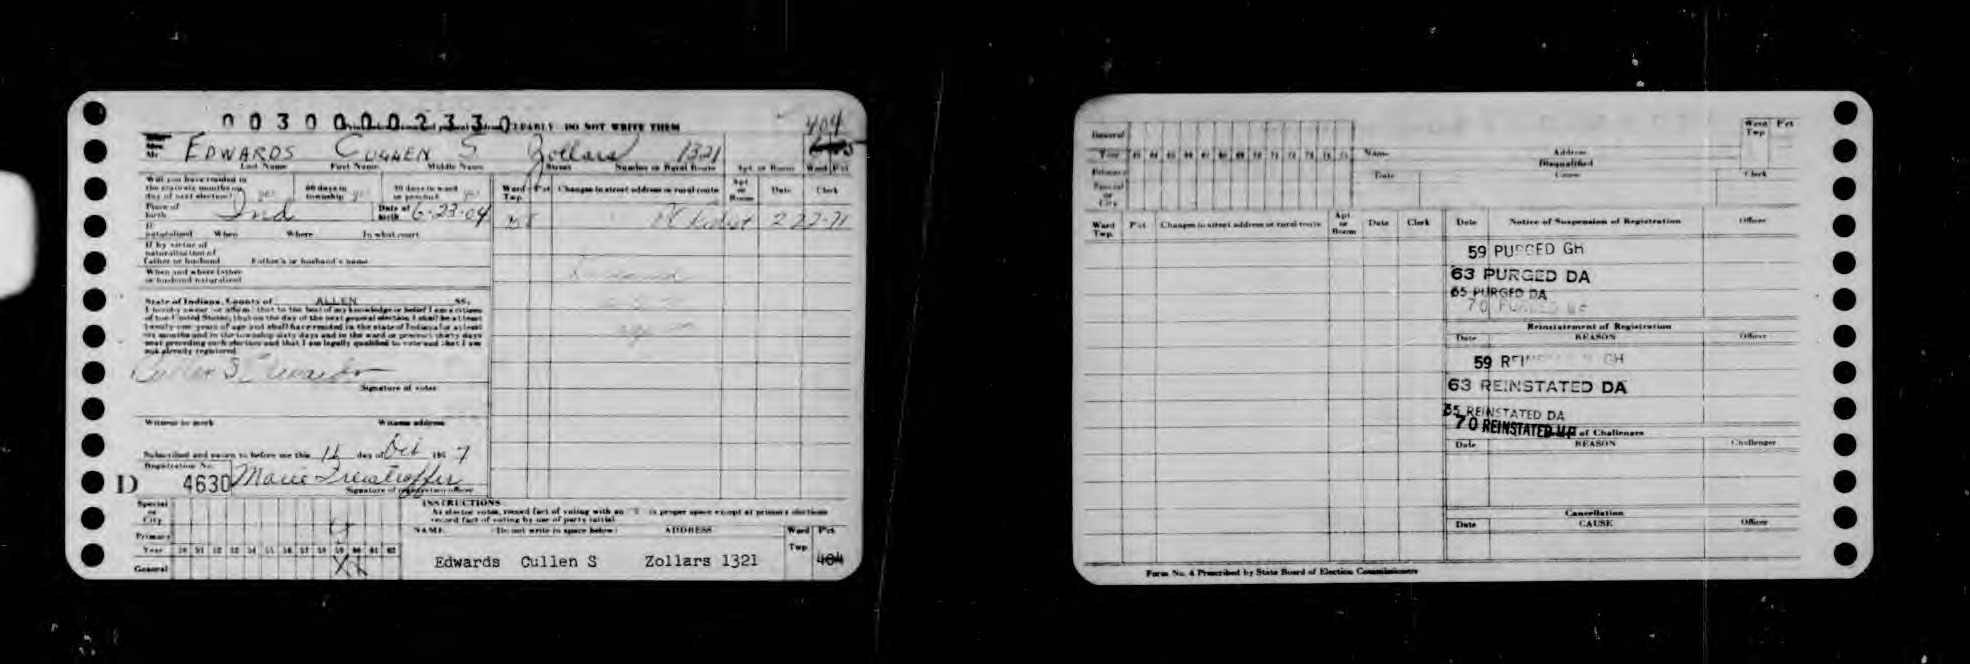 00300002330
EARLY DO NOT WRITE THEM
404
Mr. EDWARDS CULLEN S Zollars 1321
Last Name First Name Middle Name Street Number or Rural Route Apt or Room Ward Pct
Will you have resided in the state six months on day of next election? yes 60 days in township yes 30 days in ward or precinct yes
Ward Twp. Pct Changes in street address or rural route Apt or Room Date Clerk
Place of birth Ind Date of birth 6-23-04
2 22-71
If naturalized When Where In what court
If by virtue of naturalization of father or husband Father's or husband's name
When and where father or husband naturalized
State of Indiana, County of ALLEN SS,
I hereby swear (or affirm) that to the best of my knowledge or belief I am a citizen
of the United States; that on the day of the next general election I shall be at least
twenty-one years of age and shall have resided in the state of Indiana for at least
six months and in the township sixty days and in the ward or precinct thirty days
next preceding such election and that I am legally qualified to vote and that I am
not already registered.
Cullen S. Edwards
Signature of voter
Witness to mark Witness address
Subscribed and sworn to before me this day of Oct 195 7
Registration No.
D 4630 Marie
Signature of registration officer
INSTRUCTIONS
As elector votes, record fact of voting with an "X" in proper space except at primary elections
record fact of voting by use of party initial
Special or City
Primary
Year 50 51 52 53 54 55 56 57 58 59 60 61 62
General X X
NAME (Do not write in space below) ADDRESS Ward Twp. Pct
Edwards Cullen S Zollars 1321 404
General
Year 63 64 65 66 67 68 69 70 71 72 73 74 75
Primary
Special or City
Name Address Ward Twp. Pct
Disqualified
Date Cause Clerk
Ward Twp. Pct Changes in street address or rural route Apt or Room Date Clerk
Date Notice of Suspension of Registration Officer
59 PURGED GH
63 PURGED DA
65 PURGED DA
70 PURGED MP
Reinstatement of Registration
Date REASON Officer
59 REINSTATED GH
63 REINSTATED DA
65 REINSTATED DA
70 REINSTATED MP
of Challenges
Date REASON Challenger
Cancellation
Date CAUSE Officer
Form No. 4 Prescribed by State Board of Election Commissioners